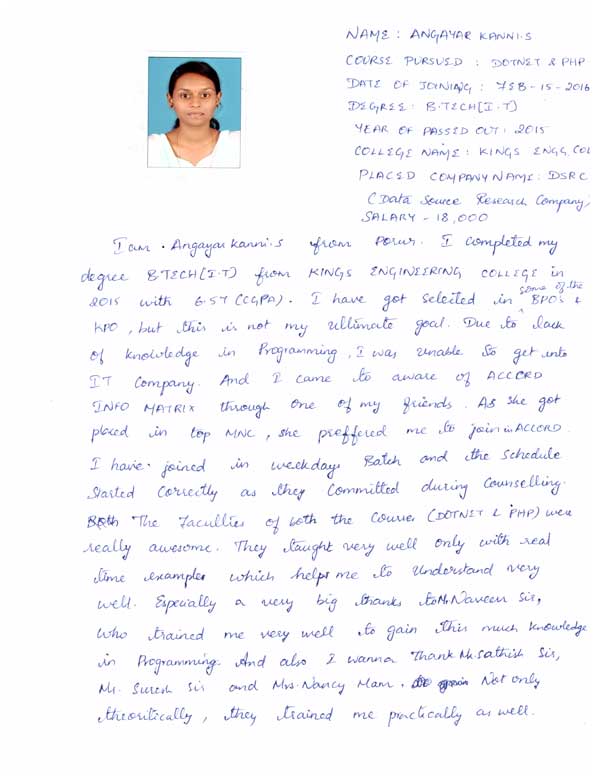 NAME : ANGAYAR KANNI.S
COURSE PURSUED : DOTNET & PHP
DATE OF JOINING : FEB-15-2016
DEGREE : B.TECH[I.T]
YEAR OF PASSED OUT : 2015
COLLEGE NAME : KINGS ENGG. COL
PLACED COMPANY NAME : DSRC
(Data Source Research Company)
SALARY - 18,000
I am . Angayar kanni.s from Porur. I completed my
degree B.TECH[I.T] from KINGS ENGINEERING COLLEGE in
2015 with 6.57 (CGPA). I have got selected in some of the BPO's &
KPO, but this is not my ultimate goal. Due to lack
of knowledge in Programming, I was unable to get into
IT Company. And I came to aware of ACCORD
INFO MATRIX through one of my friends. As she got
placed in top MNC, she preffered me to join in ACCORD.
I have joined in weekdays Batch and the schedule
started correctly as they committed during Counselling.
The Faculties of both the Courses (DOTNET & PHP) were
really awesome. They taught very well only with real
time examples which helps me to understand very
well. Especially a very big thanks to Mr. Naveen Sir,
who trained me very well to gain this much knowledge
in Programming. And also I wanna Thank Mr. Sathish Sir,
Mr. Suresh Sir and Mrs. Nancy Mam. Not only
theoritically, they trained me practically as well.